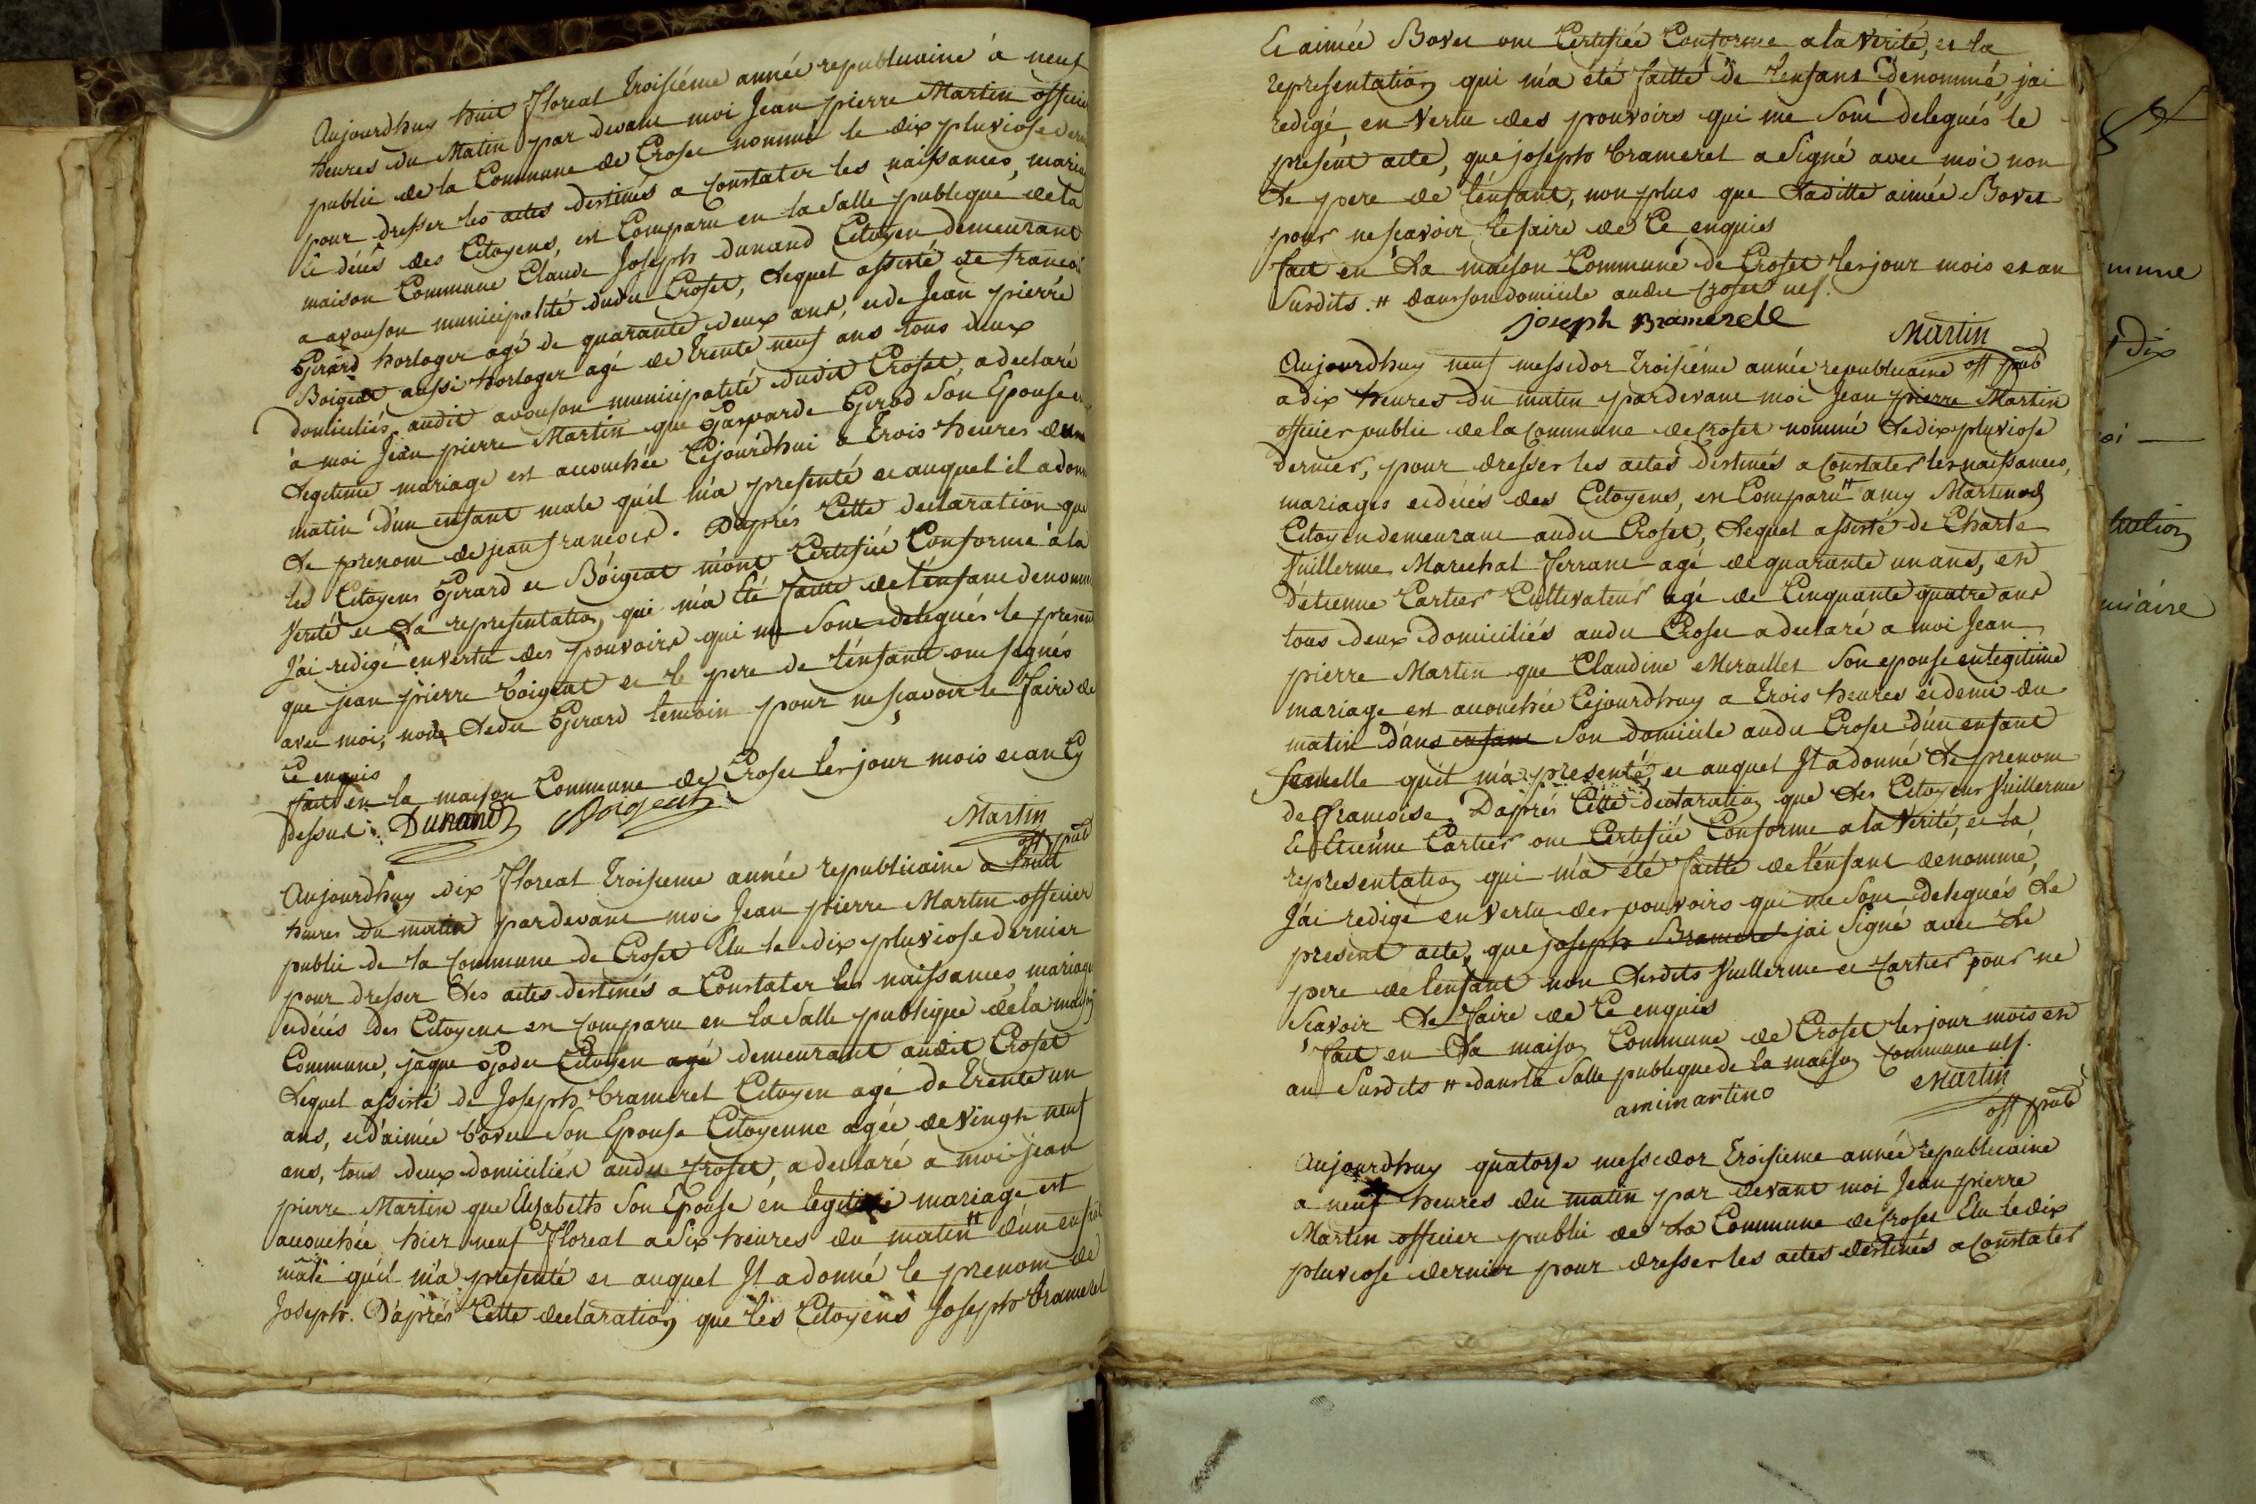 Aujourdhuy huit floreal troisiéme année republicaine à neuf
heures du Matin par devant moi Jean pierre Martin officier
public de la Commune de Croset nommé le dix pluviose dern
pour dresser les actes destinés a constater les naissances, maria
et décés des Citoyens, est Comparu en la Salle publique de la
maison Commune Claude Joseph Dunand Citoyen demeurant
a avouson municipalité dudit Croset, lequel assisté de francois
Girard horloger agé de quarante deux ans, et de Jean pierre
Boigeat aussi horloger agé de trente neuf ans tous deux
domiciliés audit avouson municipalité dudit Croset a declaré
à moi Jean pierre Martin que Gasparde Girod Son Epouse en
legitime mariage est accouchée Cejourdhui a trois heures du
matin d'un enfant male qu'il m'a presenté et auquel il a donné
le prenom de jean francois. Daprés Cette declaration que
les Citoyens Girard et Boigeat m'ont Certifié Conforme à la
Verité et la representation qui m'a été faitte de l'enfant denommé
J'ai redigé en vertu des pouvoirs qui me Sont delegués le present
que jean pierre boigeat et le pere de l'enfant ont signés
avec moi, non ledit Girard temoin pour ne scavoir le faire de
Ce enquis
fait en la maison Commune de Croset les jour mois et an Cy
dessus. Dunand Boigeat Martin
off pub
Aujourdhuy dix floreal troisieme année republicaine a huit
heures du matin pardevant moi Jean pierre Martin officier
public de la Commune de Croset Elu le dix pluviose dernier
pour dresser les actes destinés a Constater les naissances mariages
et décés des Citoyens est comparu en la Salle publique de la maison
Commune, jaque Godet Citoyen agé demeurant audit Croset
Lequel assisté de Joseph brameret Citoyen agé de trente un
ans, et d'aimée bovet Son Epouse Citoyenne agée de vingt neuf
ans, tous deux domiciliés audit Croset, a declaré a moi jean
pierre Martin que Elizabeth Son Epouse en legitime mariage est
accouchée hier neuf floreal a Six heures du matin # d'un enfant
male qu'il m'a presenté et auquel Il a donné le prenom de
Joseph. D'aprés Cette declaration que les Citoyens Joseph brameret
Et aimée Bovet ont Certifiée Conforme a la Verité, et la
representation qui m'a été faitte de l'enfant denommé, jai
redigé en Vertu des pouvoirs qui me Sont delegués le
présent acte, que joseph brameret a Signé avec moi non
le pere de l'enfant, non plus que laditte aimée Bovet
pour ne scavoir le faire de Ce enquis
fait en la maison Commune de Croset les jour mois et an
Susdits. # dans son domicile audit Croset
joseph Bramerell Martin
off pub
Aujourdhuy neuf messidor troisiéme année republicaine
a dix heures du matin pardevant moi Jean pierre Martin
officier public de la Commune de Croset nommé le dix pluviose
dernier, pour dresser les actes destinés a Constater les naissances,
mariages et décés des Citoyens, est Comparu # amy Martinod
Citoyen demeurant audit Croset, Lequel assisté de Charle
Vuillerme Marechal ferrant agé de quarante un ans, et
D'etienne Cartier Cultivateur agé de Cinquante quatre ans
tous deux domiciliés audit Croset a declaré a moi Jean
pierre Martin que Claudine Merailles Son epouse en legitime
mariage est accouchée Cejourdhuy a trois heures et demi du
matin dans enfant Son domicile audit Croset d'un enfant
femelle quil m'a presenté, et auquel Il a donné le prenom
de francoise. Daprés Cette declaration que les Citoyens Vuillerme
Et Etienne Cartier ont Certifié Conforme a la Verité, et la
representation qui m'a été faitte de l'enfant denommé,
J'ai redigé en Vertu des pouvoirs qui me Sont delegués le
present acte, que joseph Brameret jai Signé avec le
pere de l'enfant non lesdits Vuillerme et Cartier pour ne
Scavoir le faire de Ce enquis
fait en la maison Commune de Croset les jour mois et
an Susdits # dans la Salle publique de la maison Commune
amimartino Martin
off pub
Aujourdhuy quatorze messidor troisieme année republicaine
a neuf heures du matin par devant moi Jean pierre
Martin officier public de la Commune de Croset Elu le dix
pluviose dernier pour dresser les actes destinés a Constater